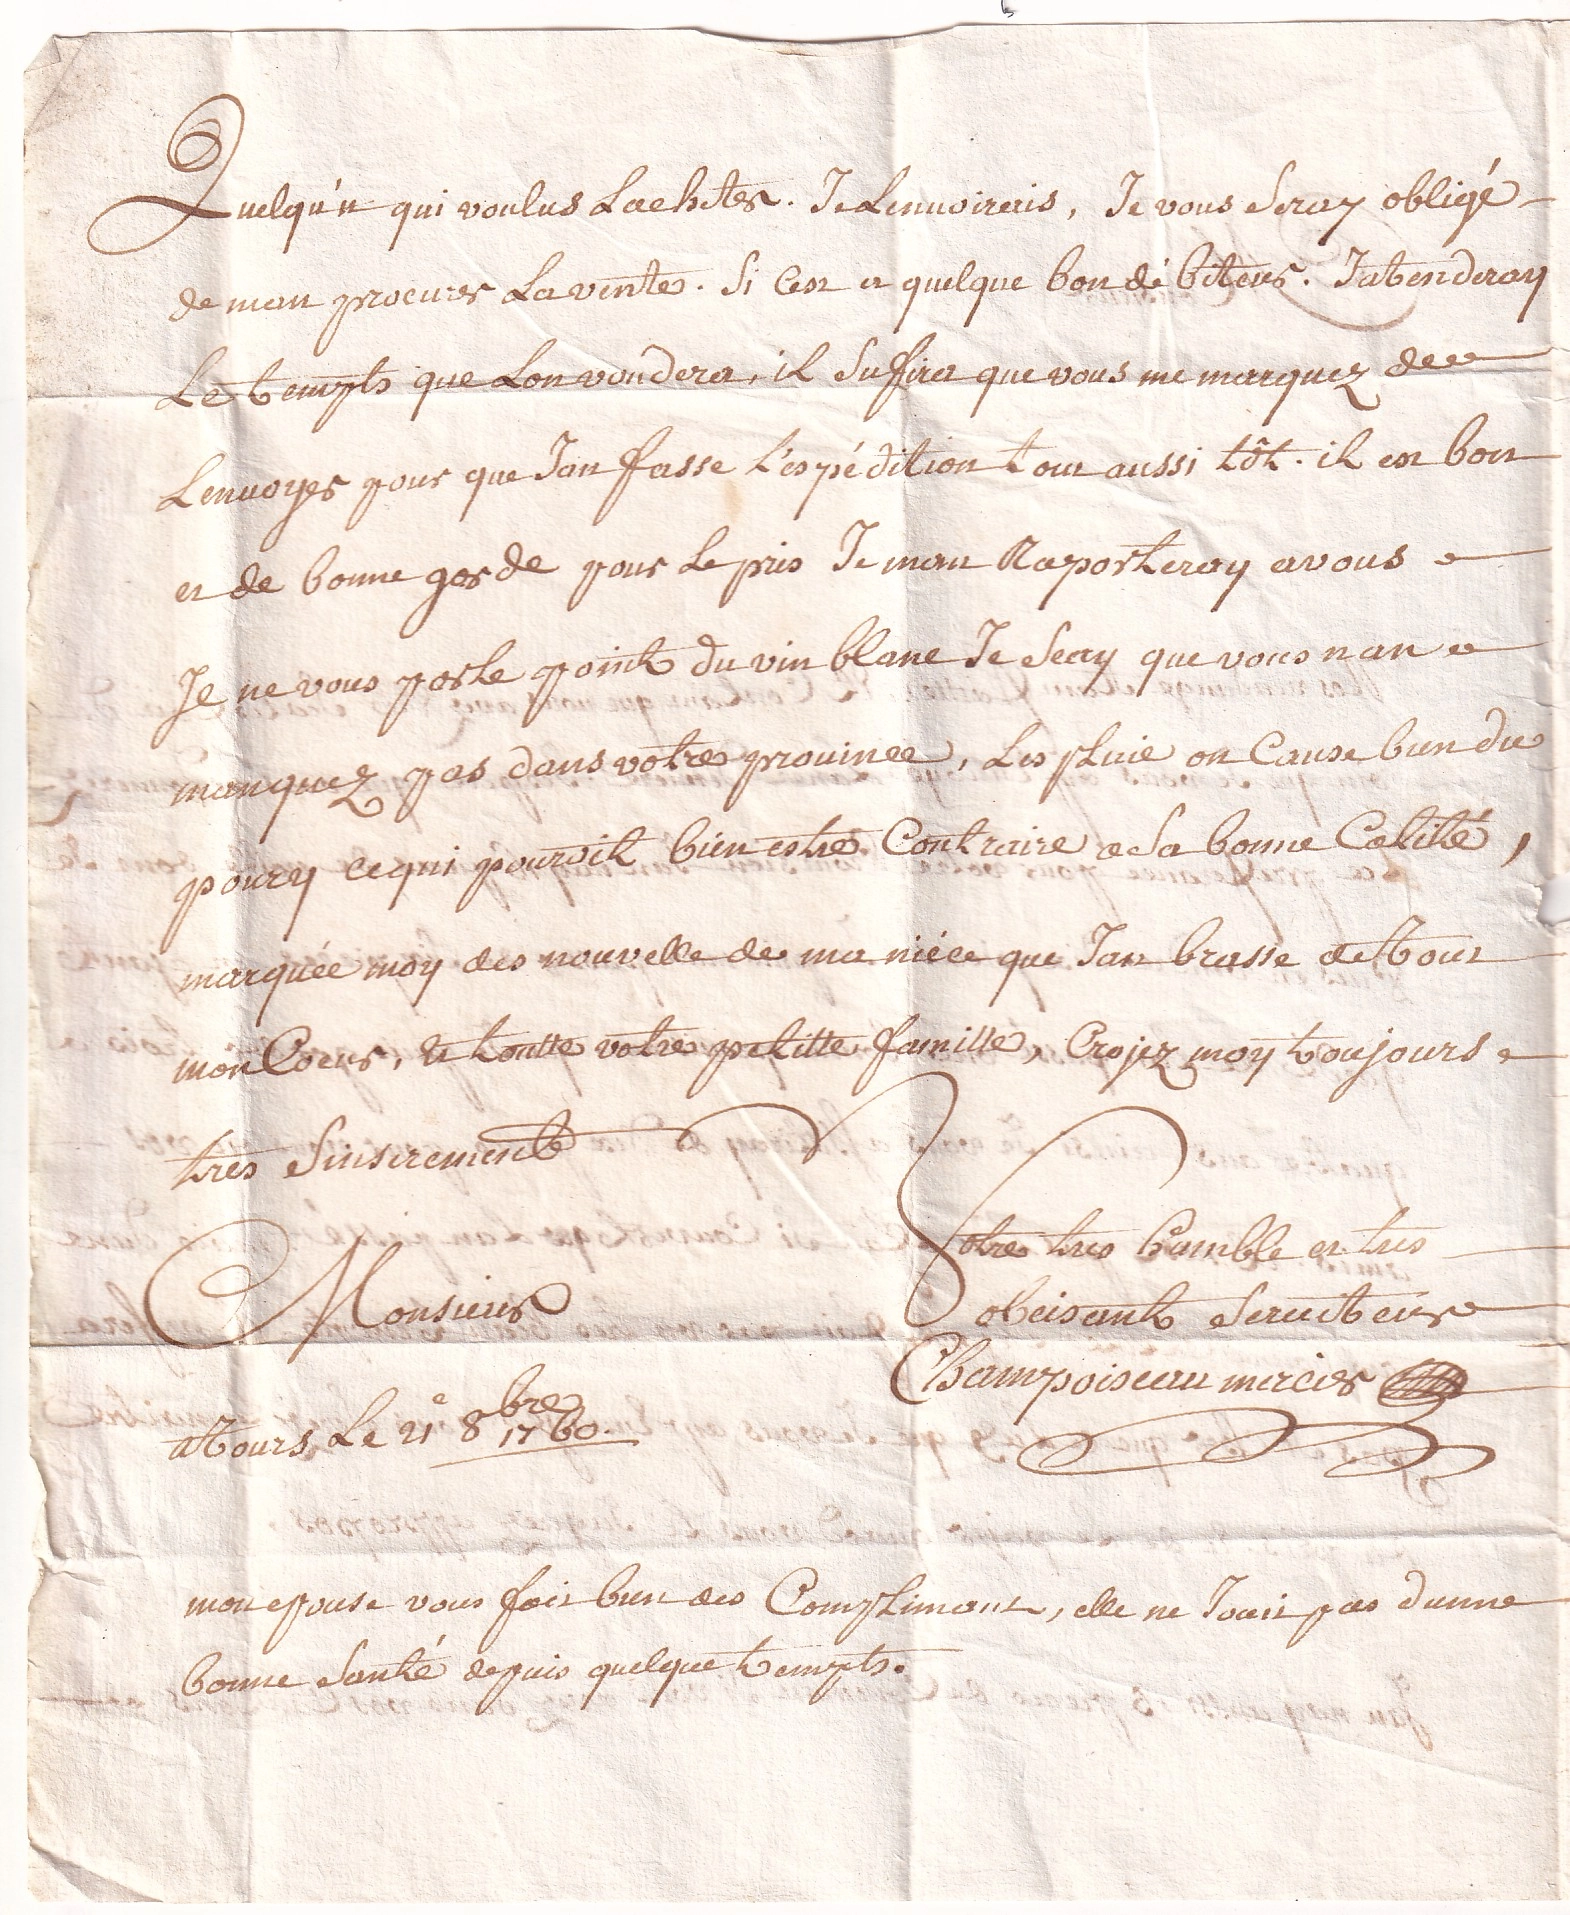 Quelqu'n qui voulus Lachter. Je Lenvoirais, Je vous Seray obligé
de man procurer La vente. Si Cest a quelque bon débiteur. Jatenderay
Le tempts que Lon voudera, il Sufira que vous me marquez de
Lenvoyer pour que Jan fasse L'espédition tout aussi tôt. il est bon
et de bonne garde pour Le pris Je man Raporteray a vous
Je ne vous parle point du vin blanc Je Scay que vous n an
manquez pas dans votre province, Les pluie on Cause bien du
poury ce qui pouroit bien estre Contraire a Sa bonne Calité,
marquée moy des nouvelle de ma niéce que Jan brasse de tout
mon Coeur, et toutte votre petitte famille, Croyez moy toujours
tres Sinserement
Monsieur
Votre tres humble et tres
obeisant Serviteur
Champoiseau mercier
a Tours Le 21e 8bre 1760.
mon epouse vous fait bien des Complimant, elle ne Jouit pas dunne
bonne Santé depuis quelque tempts.